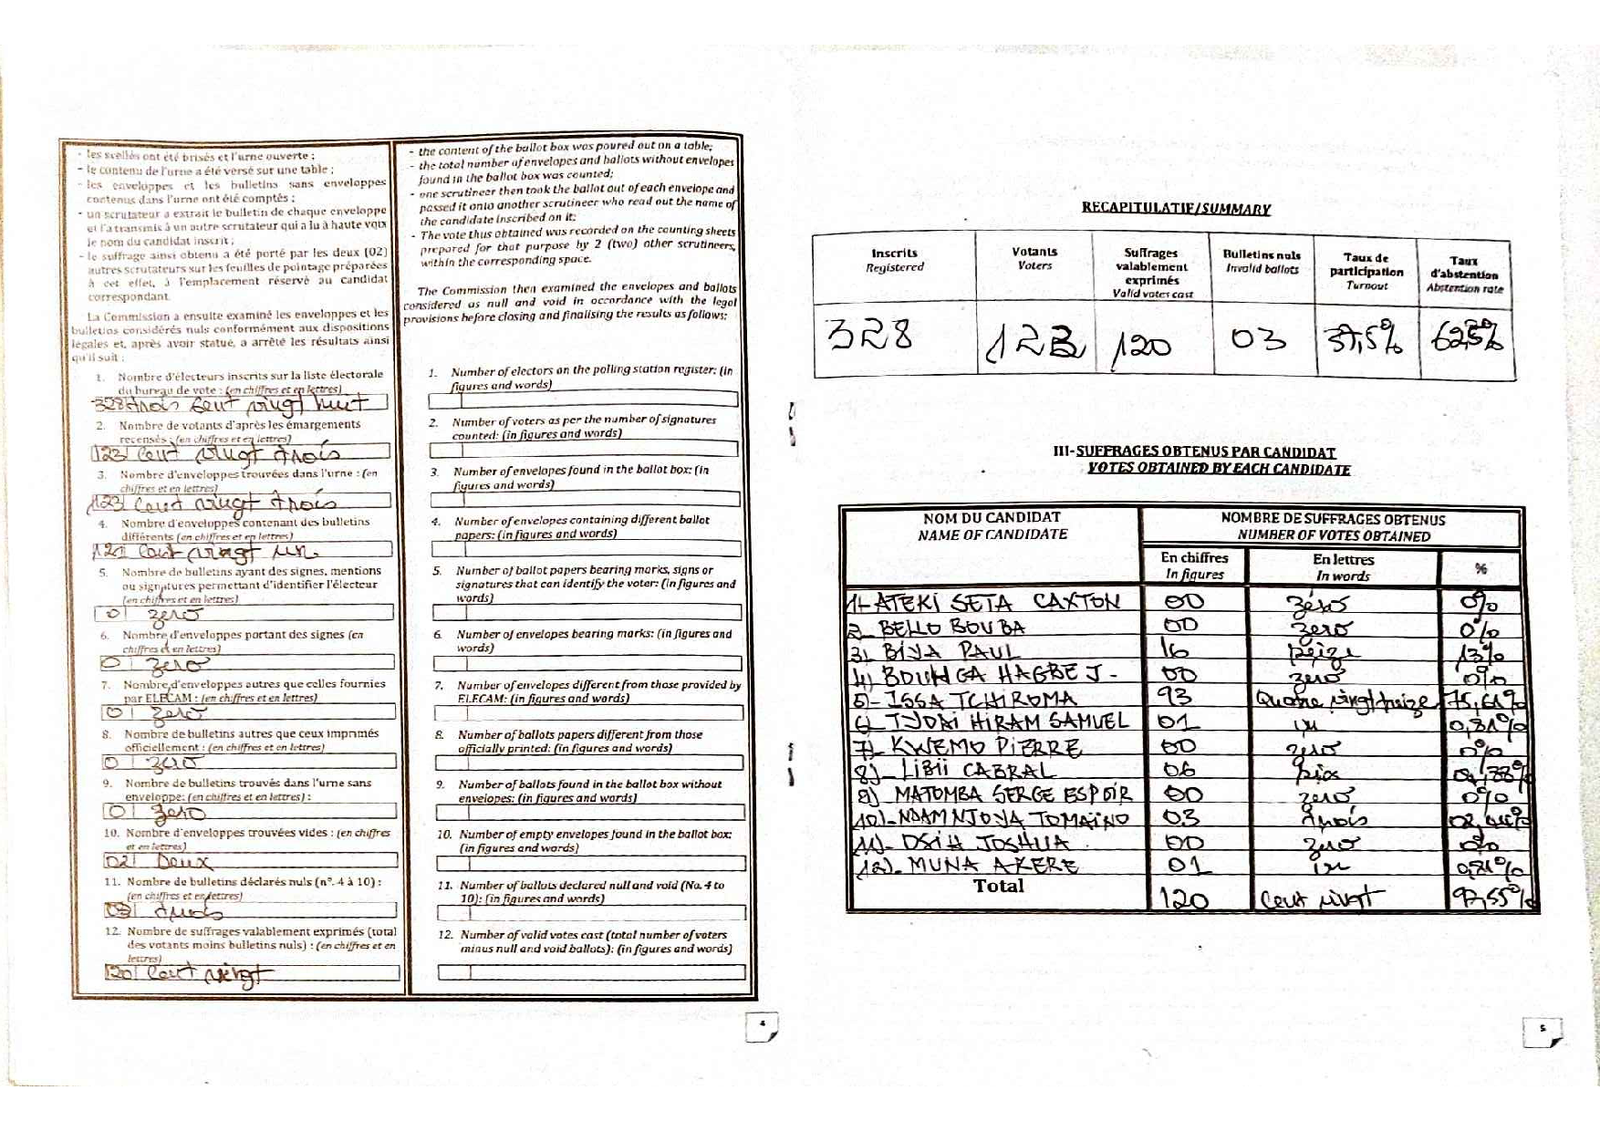 - les scellés ont été brisés et l'urne ouverte ;
- le contenu de l'urne a été versé sur une table ;
- les enveloppes et les bulletins sans enveloppes
contenus dans l'urne ont été comptés ;
- un scrutateur a extrait le bulletin de chaque enveloppe
et l'a transmis à un autre scrutateur qui a lu à haute voix
le nom du candidat inscrit ;
- le suffrage ainsi obtenu a été porté par les deux (02)
autres scrutateurs sur les feuilles de pointage préparées
à cet effet, à l'emplacement réservé au candidat
correspondant.
La Commission a ensuite examiné les enveloppes et les
bulletins considérés nuls conformément aux dispositions
légales et, après avoir statué, a arrêté les résultats ainsi
qu'il suit :
1. Nombre d'électeurs inscrits sur la liste électorale
du bureau de vote : (en chiffres et en lettres)
328 trois cent vingt huit
2. Nombre de votants d'après les émargements
recensés : (en chiffres et en lettres)
123 cent vingt trois
3. Nombre d'enveloppes trouvées dans l'urne : (en
chiffres et en lettres)
123 cent vingt trois
4. Nombre d'enveloppes contenant des bulletins
différents (en chiffres et en lettres)
121 cent vingt un
5. Nombre de bulletins ayant des signes, mentions
ou signatures permettant d'identifier l'électeur
(en chiffres et en lettres)
0 zero
6. Nombre d'enveloppes portant des signes (en
chiffres et en lettres)
0 zero
7. Nombre d'enveloppes autres que celles fournies
par ELECAM : (en chiffres et en lettres)
0 zero
8. Nombre de bulletins autres que ceux imprimés
officiellement : (en chiffres et en lettres)
0 zero
9. Nombre de bulletins trouvés dans l'urne sans
enveloppe: (en chiffres et en lettres) :
0 zero
10. Nombre d'enveloppes trouvées vides : (en chiffres
et en lettres)
02 Deux
11. Nombre de bulletins déclarés nuls (n°. 4 à 10) :
(en chiffres et en lettres)
03 trois
12. Nombre de suffrages valablement exprimés (total
des votants moins bulletins nuls) : (en chiffres et en
lettres)
120 cent vingt
- the content of the ballot box was poured out on a table;
- the total number of envelopes and ballots without envelopes
found in the ballot box was counted;
- one scrutineer then took the ballot out of each envelope and
passed it onto another scrutineer who read out the name of
the candidate inscribed on it;
- The vote thus obtained was recorded on the counting sheets
prepared for that purpose by 2 (two) other scrutineers,
within the corresponding space.
The Commission then examined the envelopes and ballots
considered as null and void in accordance with the legal
provisions before closing and finalising the results as follows:
1. Number of electors on the polling station register: (in
figures and words)
2. Number of voters as per the number of signatures
counted: (in figures and words)
3. Number of envelopes found in the ballot box: (in
figures and words)
4. Number of envelopes containing different ballot
papers: (in figures and words)
5. Number of ballot papers bearing marks, signs or
signatures that can identify the voter: (in figures and
words)
6. Number of envelopes bearing marks: (in figures and
words)
7. Number of envelopes different from those provided by
ELECAM: (in figures and words)
8. Number of ballots papers different from those
officially printed: (in figures and words)
9. Number of ballots found in the ballot box without
envelopes: (in figures and words)
10. Number of empty envelopes found in the ballot box:
(in figures and words)
11. Number of ballots declared null and void (No. 4 to
10): (in figures and words)
12. Number of valid votes cast (total number of voters
minus null and void ballots): (in figures and words)
4
RECAPITULATIF/SUMMARY
Inscrits Registered | Votants Voters | Suffrages valablement exprimés Valid votes cast | Bulletins nuls Invalid ballots | Taux de participation Turnout | Taux d'abstention Abstention rate
328 | 123 | 120 | 03 | 37,5% | 62,5%
III-SUFFRAGES OBTENUS PAR CANDIDAT
VOTES OBTAINED BY EACH CANDIDATE
NOM DU CANDIDAT NAME OF CANDIDATE | NOMBRE DE SUFFRAGES OBTENUS NUMBER OF VOTES OBTAINED
En chiffres In figures | En lettres In words | %
1- ATEKI SETA CAXTON 00 zéros 0%
2- BELLO BOUBA 00 zero 0%
3) BIYA PAUL 16 seize 13%
4) BOUNGA HAGBE J- 00 zero 0%
5- ISSA TCHIROMA 93 Quatre vingt treize 75,61%
6) IYODI HIRAM SAMUEL 01 un 0,81%
7)- KWEMO PIERRE 00 zero 0%
8)- LIBII CABRAL 06 04,88%
9) MATOMBA SERGE ESPOIR 00 zero 0%
10)- NDAM NJOYA TOMAINO 03 trois 02,44%
11)- OSIH JOSHUA 00 zero 0%
12). MUNA AKERE 01 un 0,81%
Total 120 cent vingt 97,55%
5